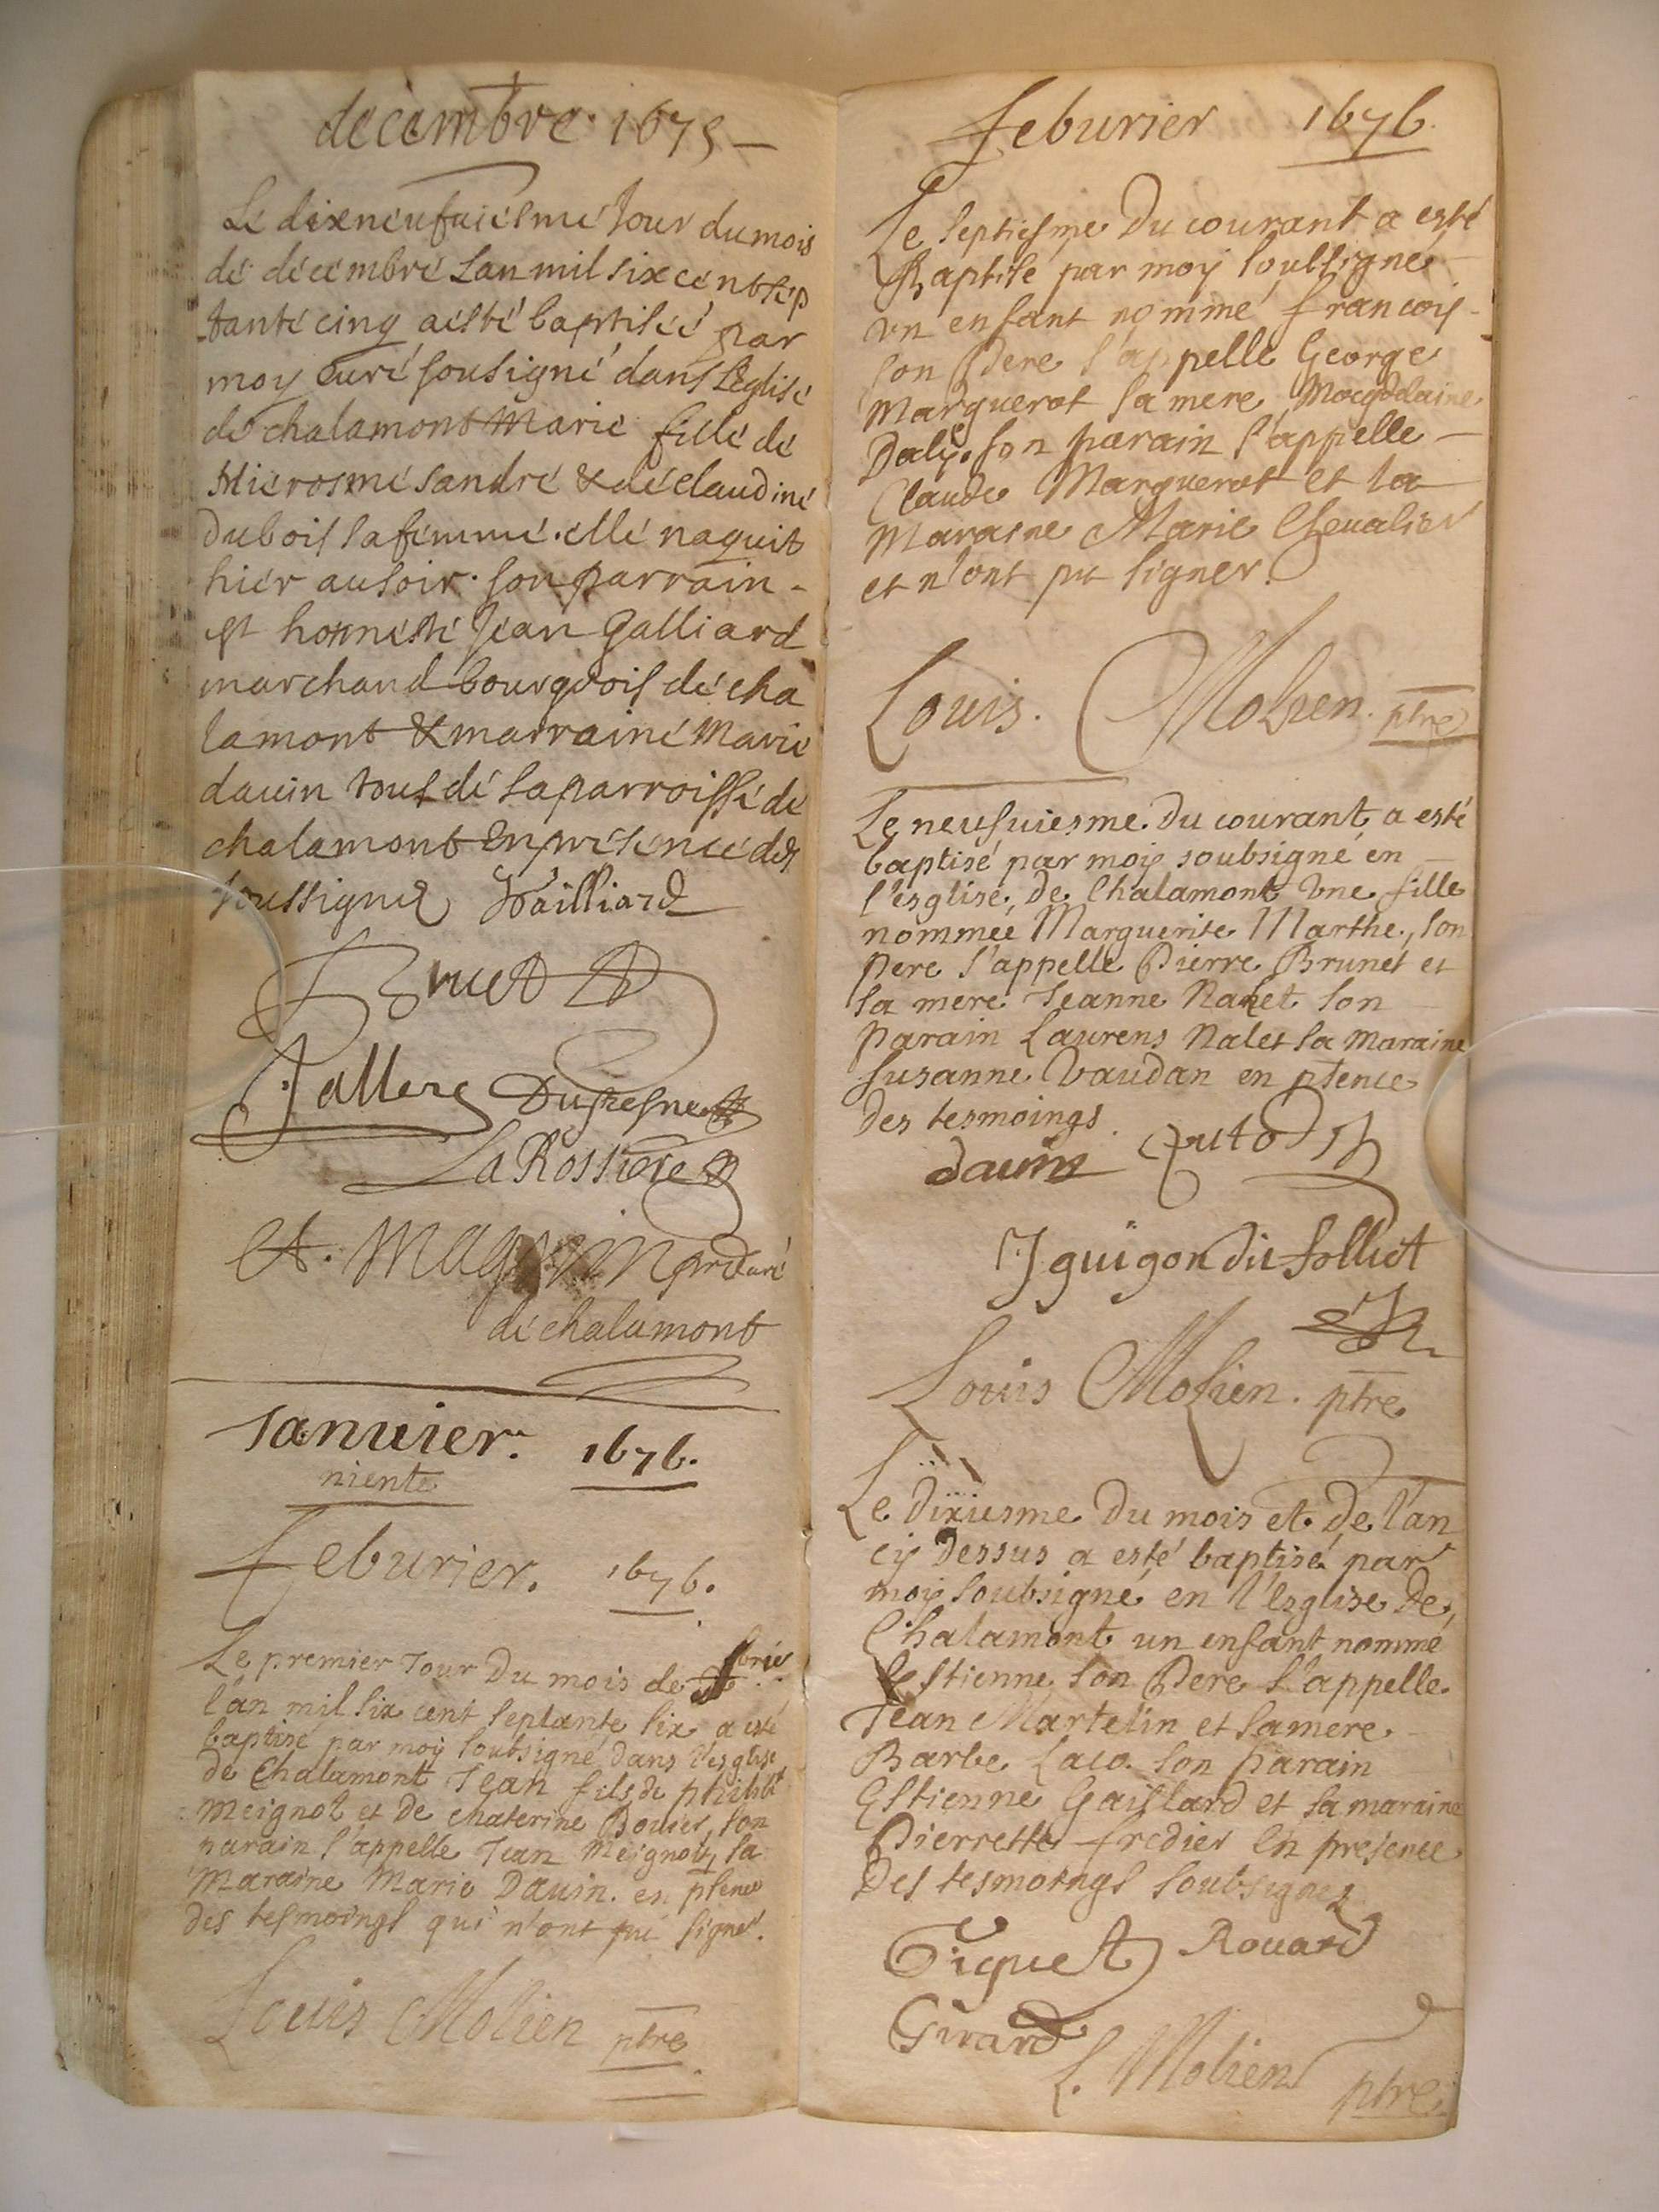 decembre 1675
Le dixneufuiesme Jour du mois
de decembre Lan mil six cent sep
tante cinq a esté baptisée par
moy curé sousigné dans Leglise
de chalamont Marie fille de
Hierosme sandre & de claudine
dubois sa femme. elle naquit
hier au soir. son parrain
est honneste Jean Galliard
marchand bourgeois de cha
lamont & marraine Marie
dauin tous de la parroisse de
chalamont En presence des
soussignes Gailliard
Bruet
Pallere Dufresne
La Rossiere
et. Magnin prêtre curé
de chalamont
Januier. 1676.
niente
Feburier. 1676.
Le premier Jour Du mois de febrier
l'an mil six cent septante six a esté
baptisé par moy soubsigné dans l'esglise
de Chalamont Jean fils de philibt
Meignot et de Chaterine Bouier, son
parain s'appelle Jean Meignot, sa
Maraine Marie Dauin. en psence
des tesmoings qui n'ont pu signer.
Louis Molien ptre
Feburier 1676.
Le septiesme Du courant a esté
Baptisé par moy soubsigné
vn enfant nommé francois
son Pere s'appelle George
Marguerot sa mere Magdelaine
Daly. son parain s'appelle
Claude Marguerot et la
Maraine Marie Cheualier
et n'ont pu signer.
Louis. Molien. ptre
Le neufuiesme. Du courant a esté
baptisé par moy soubsigné en
l'esglise, de Chalamont vne fille
nommée Marguerite Marthe, son
pere s'appelle Pierre Brunet et
sa mere Jeanne Nalet son
parain Laurens Nalet sa maraine
Susanne Vaudan en psence
des tesmoings.
dauin Putod
J guigon dit folliet
Louis Molien. ptre
Le Dixiesme Du mois et de l'an
cy Dessus a esté baptisé par
moy soubsigné en l'esglise De
Chalamont un enfant nommé
Estienne son Pere s'appelle
Jean Martelin et sa mere
Barbe Laco. son parain
Estienne Gaillard et sa maraine
Pierrette fredier En presence
Des tesmoings soubsignez
Tiquet Rouard
Girard
L. Molien ptre